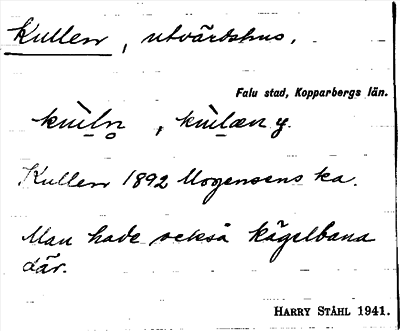 Kullen, utvärdshus.
Falu stad, Kopparbergs län.
Kullen 1892 Mogensens ka.
Man hade också kägelbana
där.
HARRY STÅHL 1941.